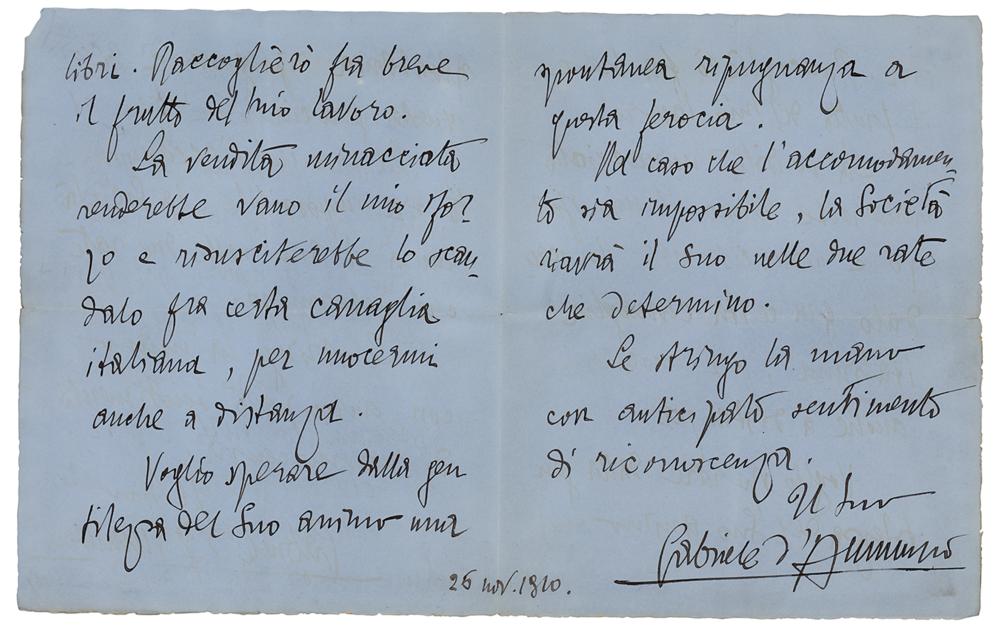 libri. Raccoglierò fra breve
il frutto del mio lavoro.
La vendita minacciata
renderebbe vano il mio sfor-
zo e risusciterebbe lo scan-
dalo fra certa canaglia
italiana, per nuocermi
anche a distanza.
Voglio sperare dalla gen
tilezza del Suo animo una
spontanea ripugnanza a
questa ferocia.
Nel caso che l'accomodamen-
to sia impossibile, la Società
riavrà il Suo nelle due rate
che determino.
Le stringo la mano
con anticipato sentimento
di riconoscenza.
Il Suo
Gabriele d'Annunzio
26 nov. 1910.